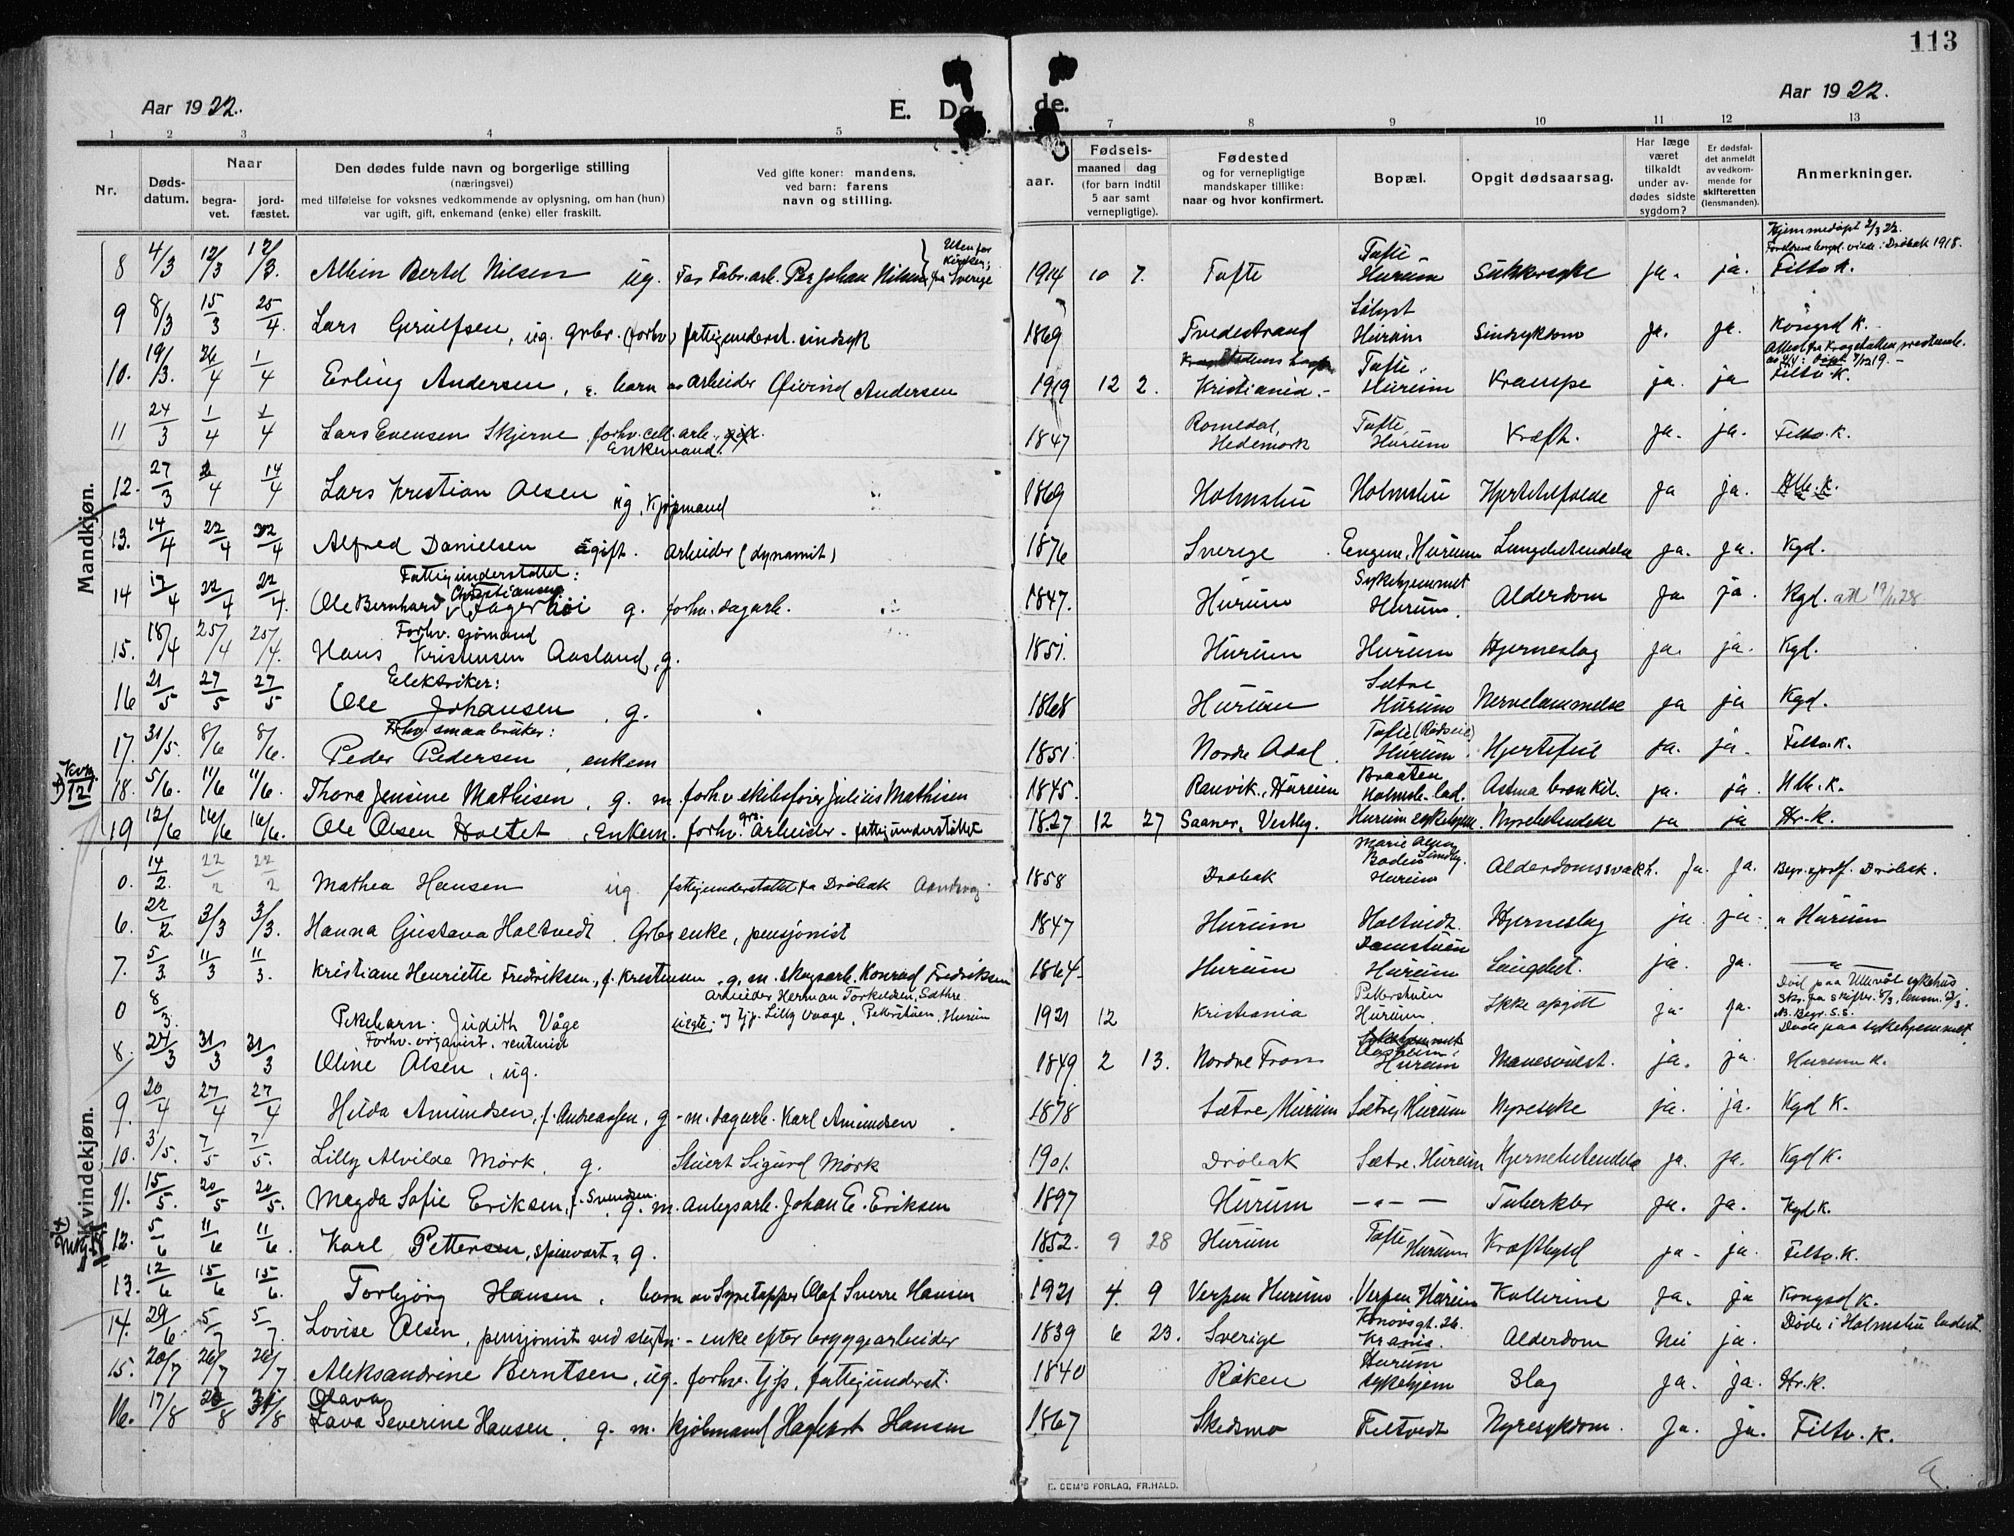 113
Aar 1922.
E. Dø de.
Aar 1922.
1 2 3 4 5 7 8 9 10 11 12 13
Nr.
Døds-datum.
Naar
begra-vet.
jord-fæstet.
Den dødes fulde navn og borgerlige stilling
(næringsvei)
med tilføielse for voksnes vedkommende av oplysning, om han (hun)
var ugift, gift, enkemand (enke) eller fraskilt.
Ved gifte koner: mandens,
ved barn: farens
navn og stilling.
aar.
Fødsels-
maaned dag
(for barn indtil
5 aar samt
vernepligtige).
Fødested
og for vernepligtige
mandskaper tillike:
naar og hvor konfirmert.
Bopæl.
Opgit dødsaarsag.
Har læge
været
tilkaldt
under av-
dødes sidste
sygdom?
Er dødsfal-
det anmeldt
av vedkom-
mende for
skifteretten
(lensmanden).
Anmerkninger.
Mandkjøn.
8 4/3 12/3 12/3. Albin Bertel Nilsen ug. Far Fabr. arb. Per Johan Nilsen fra Sverige 1914 10 7. Tofte Tofte Hurum Sukkersyke ja. ja. Filtv. K.
9 8/3 15/3 25/4. Lars Gerulfsen, ug. grbr. (forhv) fattigunderst. sindsyk 1869 Tvedestrand Hurum Sindsykdom ja. ja. Kongsd K.
10. 19/3. 26/4 1/4 Erling Andersen, barn av arbeider Øivind Andersen 1919 12 2. Kristiania. Tofte, Hurum Krampe ja. ja Filtv. K.
11 24/3 1/4 1/4 Lars Evensen Skjerve, forhv. cell. arb. Enkemand. 1847 Romedal, Hedemark Tofte, Hurum Kræft. ja. ja. Filtv. K.
12. 27/3 4 14/4 Lars Kristian Olsen ug, Kjøpmand 1869 Holmsbu Holmsbu Hjerteteilfælde ja ja. Hlb. K.
13. 14/4 22/4 22/4 Alfred Danielsen gift. arbeider (dynamit) 1876 Sverige Engene, Hurum Lungebetændelse ja. ja. Kgd.
14 17/4 22/4 22/4. Fattigunderstøttet: Ole Bernhard Christiansen (Fagerhøi g. forhv. dagarb. 1847. Hurum Sykehjemmet Hurum. Alderdom ja. ja. Kgd. att 19/11 28
15. 18/4 25/4 25/4. Forhv. sjømand Hans Kristensen Aasland, g. 1851. Hurum Hurum Hjerneslag ja. ja. Kgd.
16 21/5 27/5 27/5 Elektriker: Ole Johansen, g. 1868 Hurum Sætre Hurum Nervelammelse ja ja Kgd.
17. 31/5. 8/6 8/6. Forhv. smaabruker: Peder Pedersen, enkem 1851. Nordre Adal Tofte (Rødseie) Hurum Hjertefeil ja. ja. Filtv. K.
18. 5/6. 11/6 11/6. Thora Jensine Mathisen, g. m. forhv skibsfører Julius Mathisen 1845. Ranvik, Hurum Braaten Holmsb. lad. Astma bronkit. ja. ja. Hlb. K.
19 12/6 16/6 16/6. Ole Olsen Holtet, Enkem. forhv. arbeider - fattigunderstøttet 1827 12 27 Saaner, Vestby. Hurum sykehjem. Nyrebetændelse ja ja Hr. K.
Kvindekjøn.
0. 14/2. 22/2 22/2 Mathea Hansen ug. fattigunderstøttet fra Drøbak 1858 Drøbak Hurum Alderdomssvakh. Ja. Ja. Begr. og jordf. Drøbak.
6. 22/2 3/3 3/3. Hanna Gustava Holtvedt. Grbr enke, pensjonist 1847 Hurum Holtvedt. Hjerneslag ja ja. " Hurum
7. 5/3 11/3 11/3. Kristiane Henriette Fredriksen, f. Kristensen, g. m. skogsarb. Konrad Fredriksen 1864. Hurum Damstuen Hurum Lungebet. ja. ja. — " —
0 8/3. Pikebarn. Judith Våge Arbeider Herman Torkildsen, Sæthre uegte: og tjp. Lilly Vaage, Petterstuen, Hurum 1921 12 Kristiania Petterstuen Hurum. Ikke opgitt ja. ja. Død paa Ullevål sykehus.
8. 24/3 31/3 31/3 Forhv. organist, rentenist Oline Olsen, ug. 1849 2 13. Nordre Fron Hurum Mavesvulst. ja. ja. Døde paa sykehjemmet. Hurum K.
9. 20/4 27/4 27/4 Hilda Amundsen, f. Andreassen, g - m. dagarb. Karl Amundsen 1878 Sætre, Hurum Sætre, Hurum Nyresyke ja. ja. Kgd K.
10. 3/5. 7/5 7/5. Lilly Alvilde Mørk, g. Stuert Sigurd Mørk 1901. Drøbak Sætre, Hurum Hjernebetændelse ja. ja. Kgd K.
11. 15/5. 20/5 20/5. Magda Sofie Eriksen, f. Svendsen. g. m. anlegsarb. Johan E. Eriksen 1897 Hurum — " — Tuberklor ja. ja. Kgd K.
12. 5/6 11/6 11/6. Karl Pettersen, spisevært, g. 1852. 9 28 Hurum Tofte Hurum Kræftbyld ja. ja. Filtv. K.
13. 12/6 15/6 15/6. Torbjørg Hansen, barn av Syretapper Olof Sverre Hansen 1921 4. 9 Verpen Hurum Verpen Hurum Kollerine ja. ja Kongsd K.
14. 29/6. 5/7 5/7. Lovise Olsen, pensjonist ved - enke efter bryggearbeider 1839 6 23. Sverige Konowsgt. 26. Krania. Alderdom Nei ja. Døde i Holmsbu
15. 20/7 26/7 26/7 Aleksandrine Berntsen, ug. forhv. tjp. fattigunderst. 1840 Røken Hurum sykehjem Slag ja. ja. Hr. K.
16. 17/8 8 8 Olava Severine Hansen, g. m. kjøbmand Hagbart Hansen 1867 Skedsmo Filtvedt Nyresykdom. ja. ja. Filtv. K.
E. SEM'S FORLAG, FR.HALD.